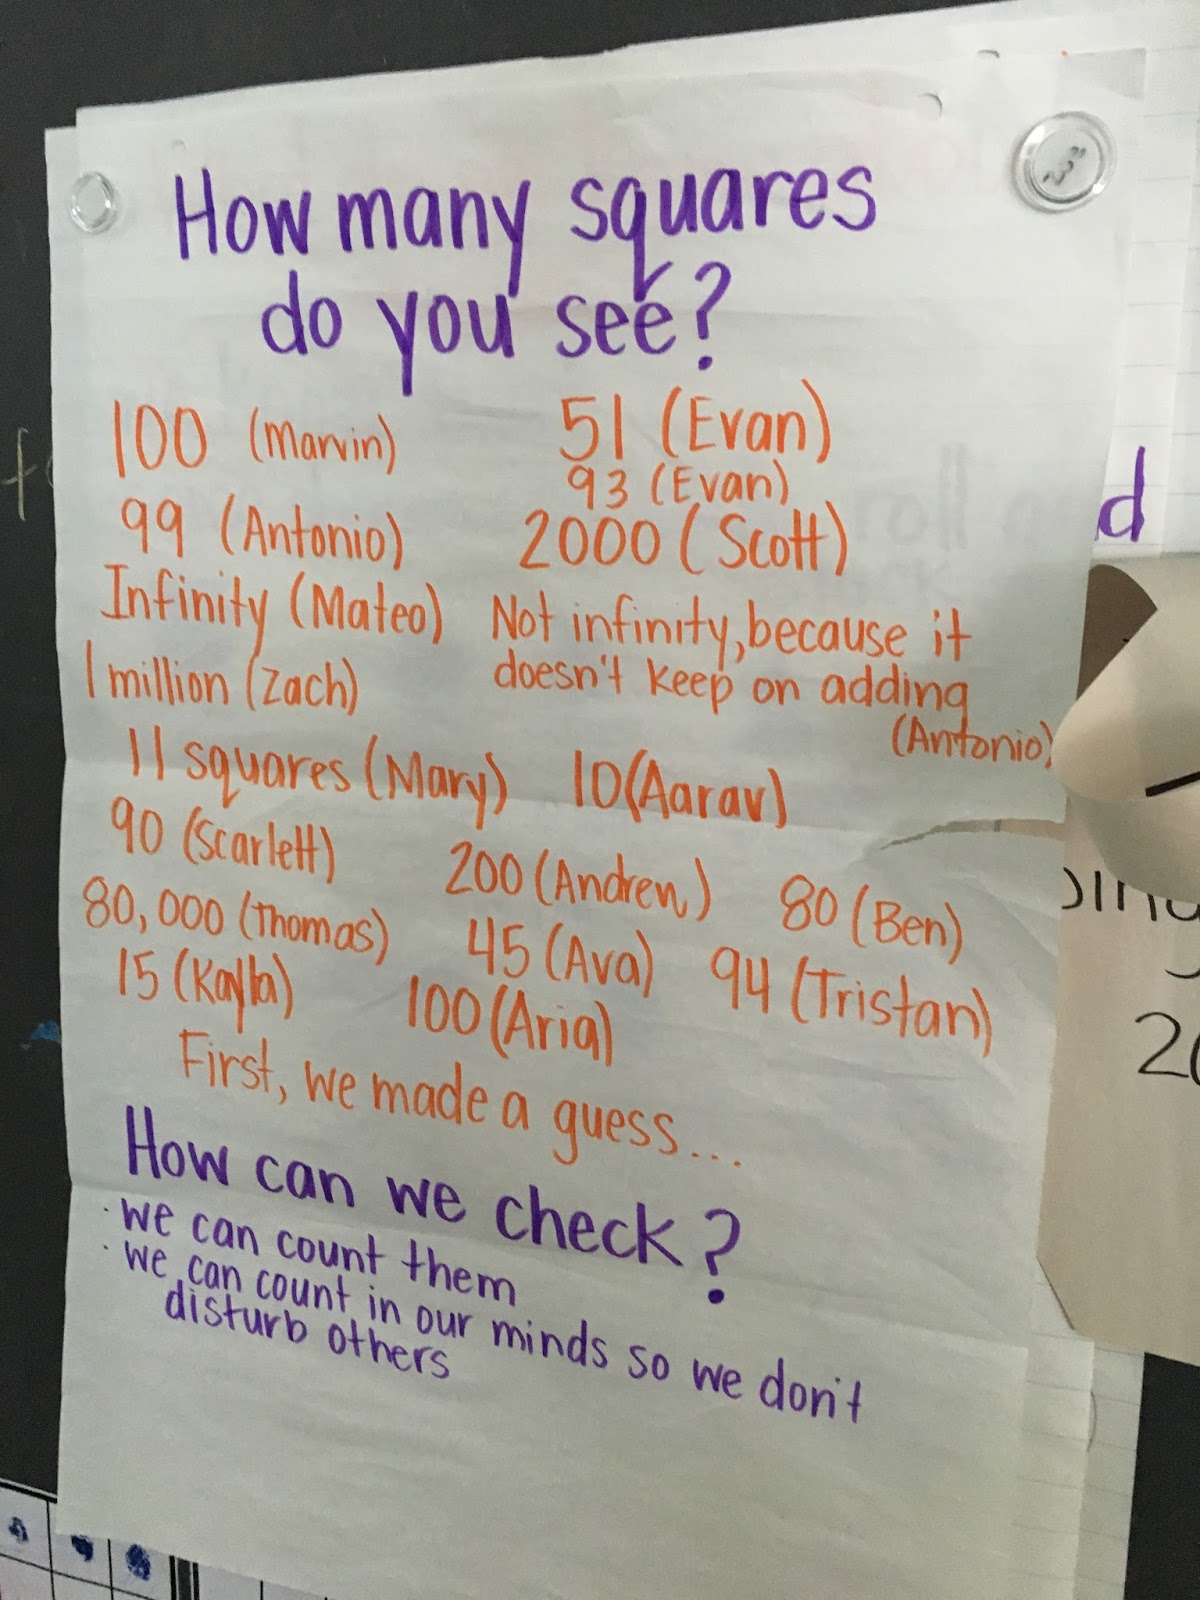 How many squares
do you see?
100 (Marvin) 51 (Evan)
93 (Evan)
99 (Antonio) 2000 (Scott)
Infinity (Mateo) Not infinity, because it
doesn't keep on adding
(Antonio)
1 million (Zach)
11 squares (Mary) 10 (Aarav)
90 (Scarlett) 200 (Andrew) 80 (Ben)
80,000 (Thomas) 45 (Ava) 94 (Tristan)
15 (Kayla) 100 (Aria)
First, we made a guess...
How can we check?
· we can count them
· we can count in our minds so we don't
disturb others